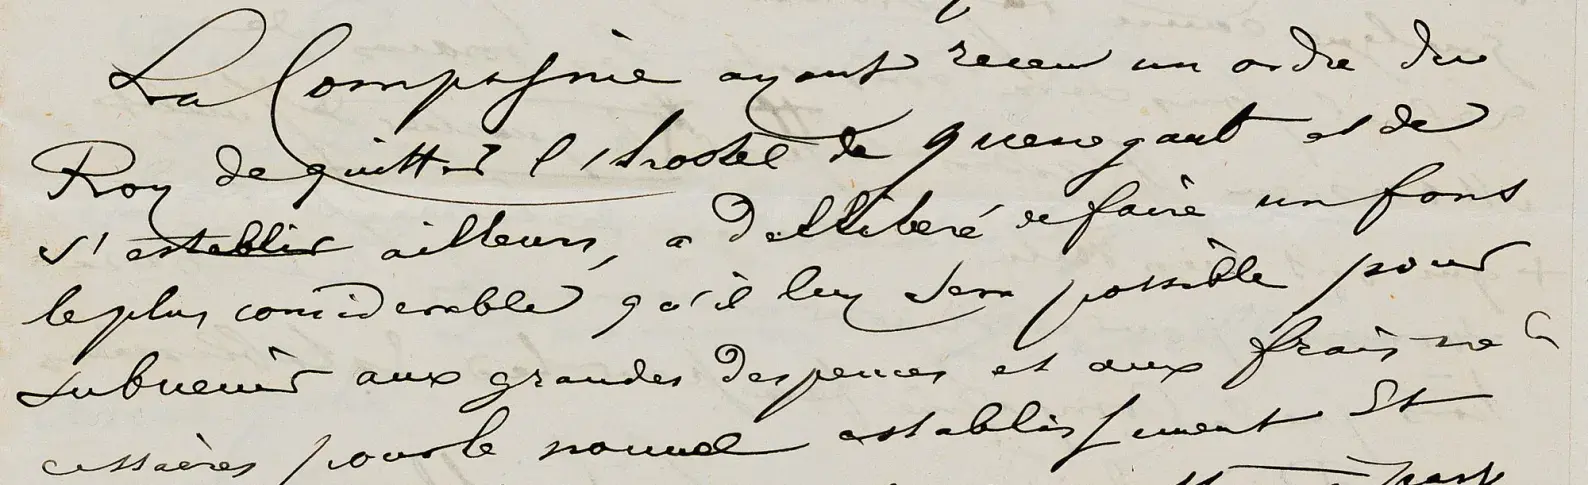 La Compagnie ayant receu un ordre du
Roy de quitter l'hostel de Guenegault et de
s'establir ailleurs, a delliberé de faire un fons
le plus considerable qu'il luy sera possible pour
subuenir aux grandes despences et aux frais ne
cessaires pour le nouuel establissement Et